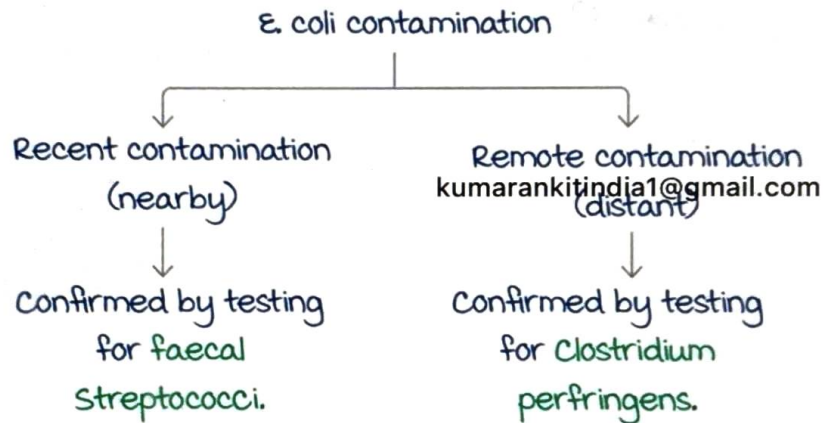 E. coli contamination
Recent contamination
(nearby)
Confirmed by testing
for faecal
Streptococci.
Remote contamination
kumarankitindia1@gmail.com
(distant)
Confirmed by testing
for Clostridium
perfringens.